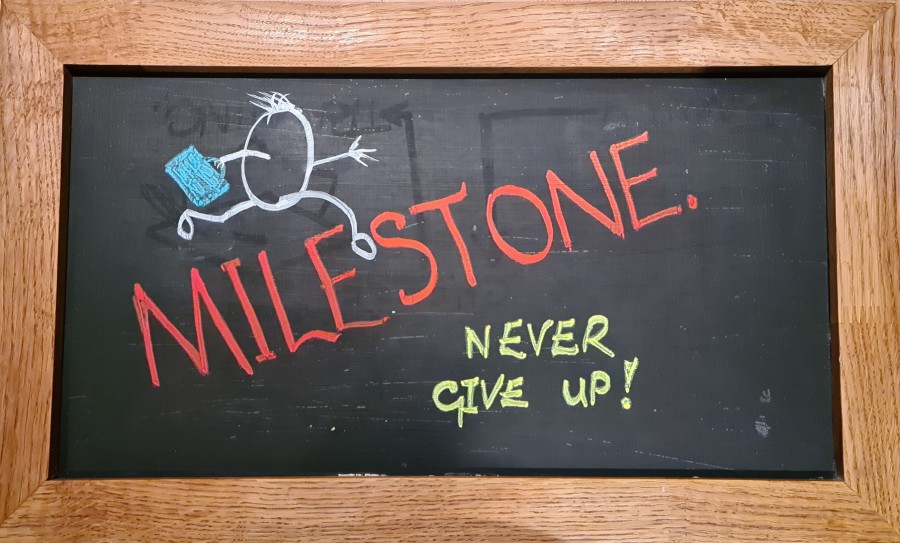 MILESTONE.
NEVER
GIVE UP!